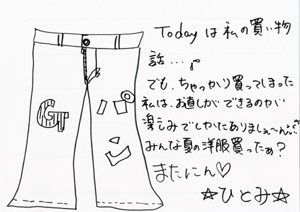 Todayは私の買い物
話...♪
でも、ちゃっかり買ってしまった
私は、お直しができるのがい
楽しみでしかたありませぇ〜ん
みんな夏の洋服買ったぁ?
またにん♡
☆ひとみ☆
GT